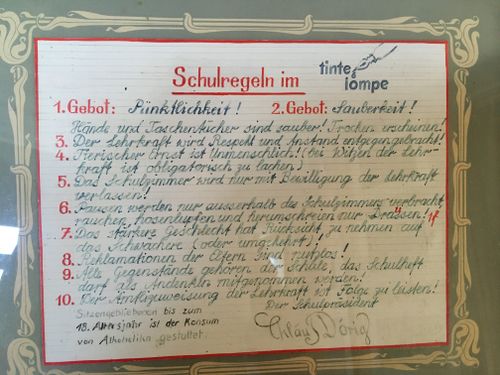 Schulregeln im tinte lompe
1. Gebot: Pünktlichkeit! 2. Gebot: Sauberkeit!
Hände und Taschentücher sind sauber! Trocken erscheinen!
3. Der Lehrkraft wird Respekt und Anstand entgegengebracht!
4. Tierischer Ernst ist Unmenschlich! (bei Witzen der Lehr-
kraft ist obligatorisch zu lachen)
5. Das Schulzimmer wird nur mit Bewilligung der Lehrkraft
verlassen!
6. Pausen werden nur ausserhalb des Schulzimmers verbracht,
rauchen, hosenlupfen und herumschreien nur Draussen!
7. Das stärkere Geschlecht hat Rücksicht zu nehmen auf
das Schwächere (oder umgekehrt)!
8. Reklamationen der Eltern sind nutzlos!
9. Alle Gegenstände gehören der Schule, das Schulheft
darf als Andenken mitgenommen werden!
10. Der Anweisung der Lehrkraft ist Folge zu leisten!
Der Schulpräsident
Sitzengebliebenen bis zum
18. Altersjahr ist der Konsum
von Alkoholika gestattet.